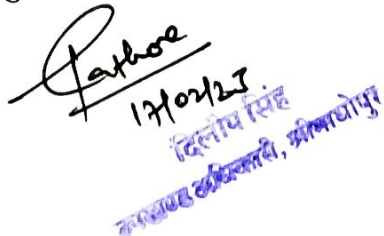 Rathore
17/02/25
दिलीप सिंह
उपखण्ड अधिकारी, श्रीमाधोपुर